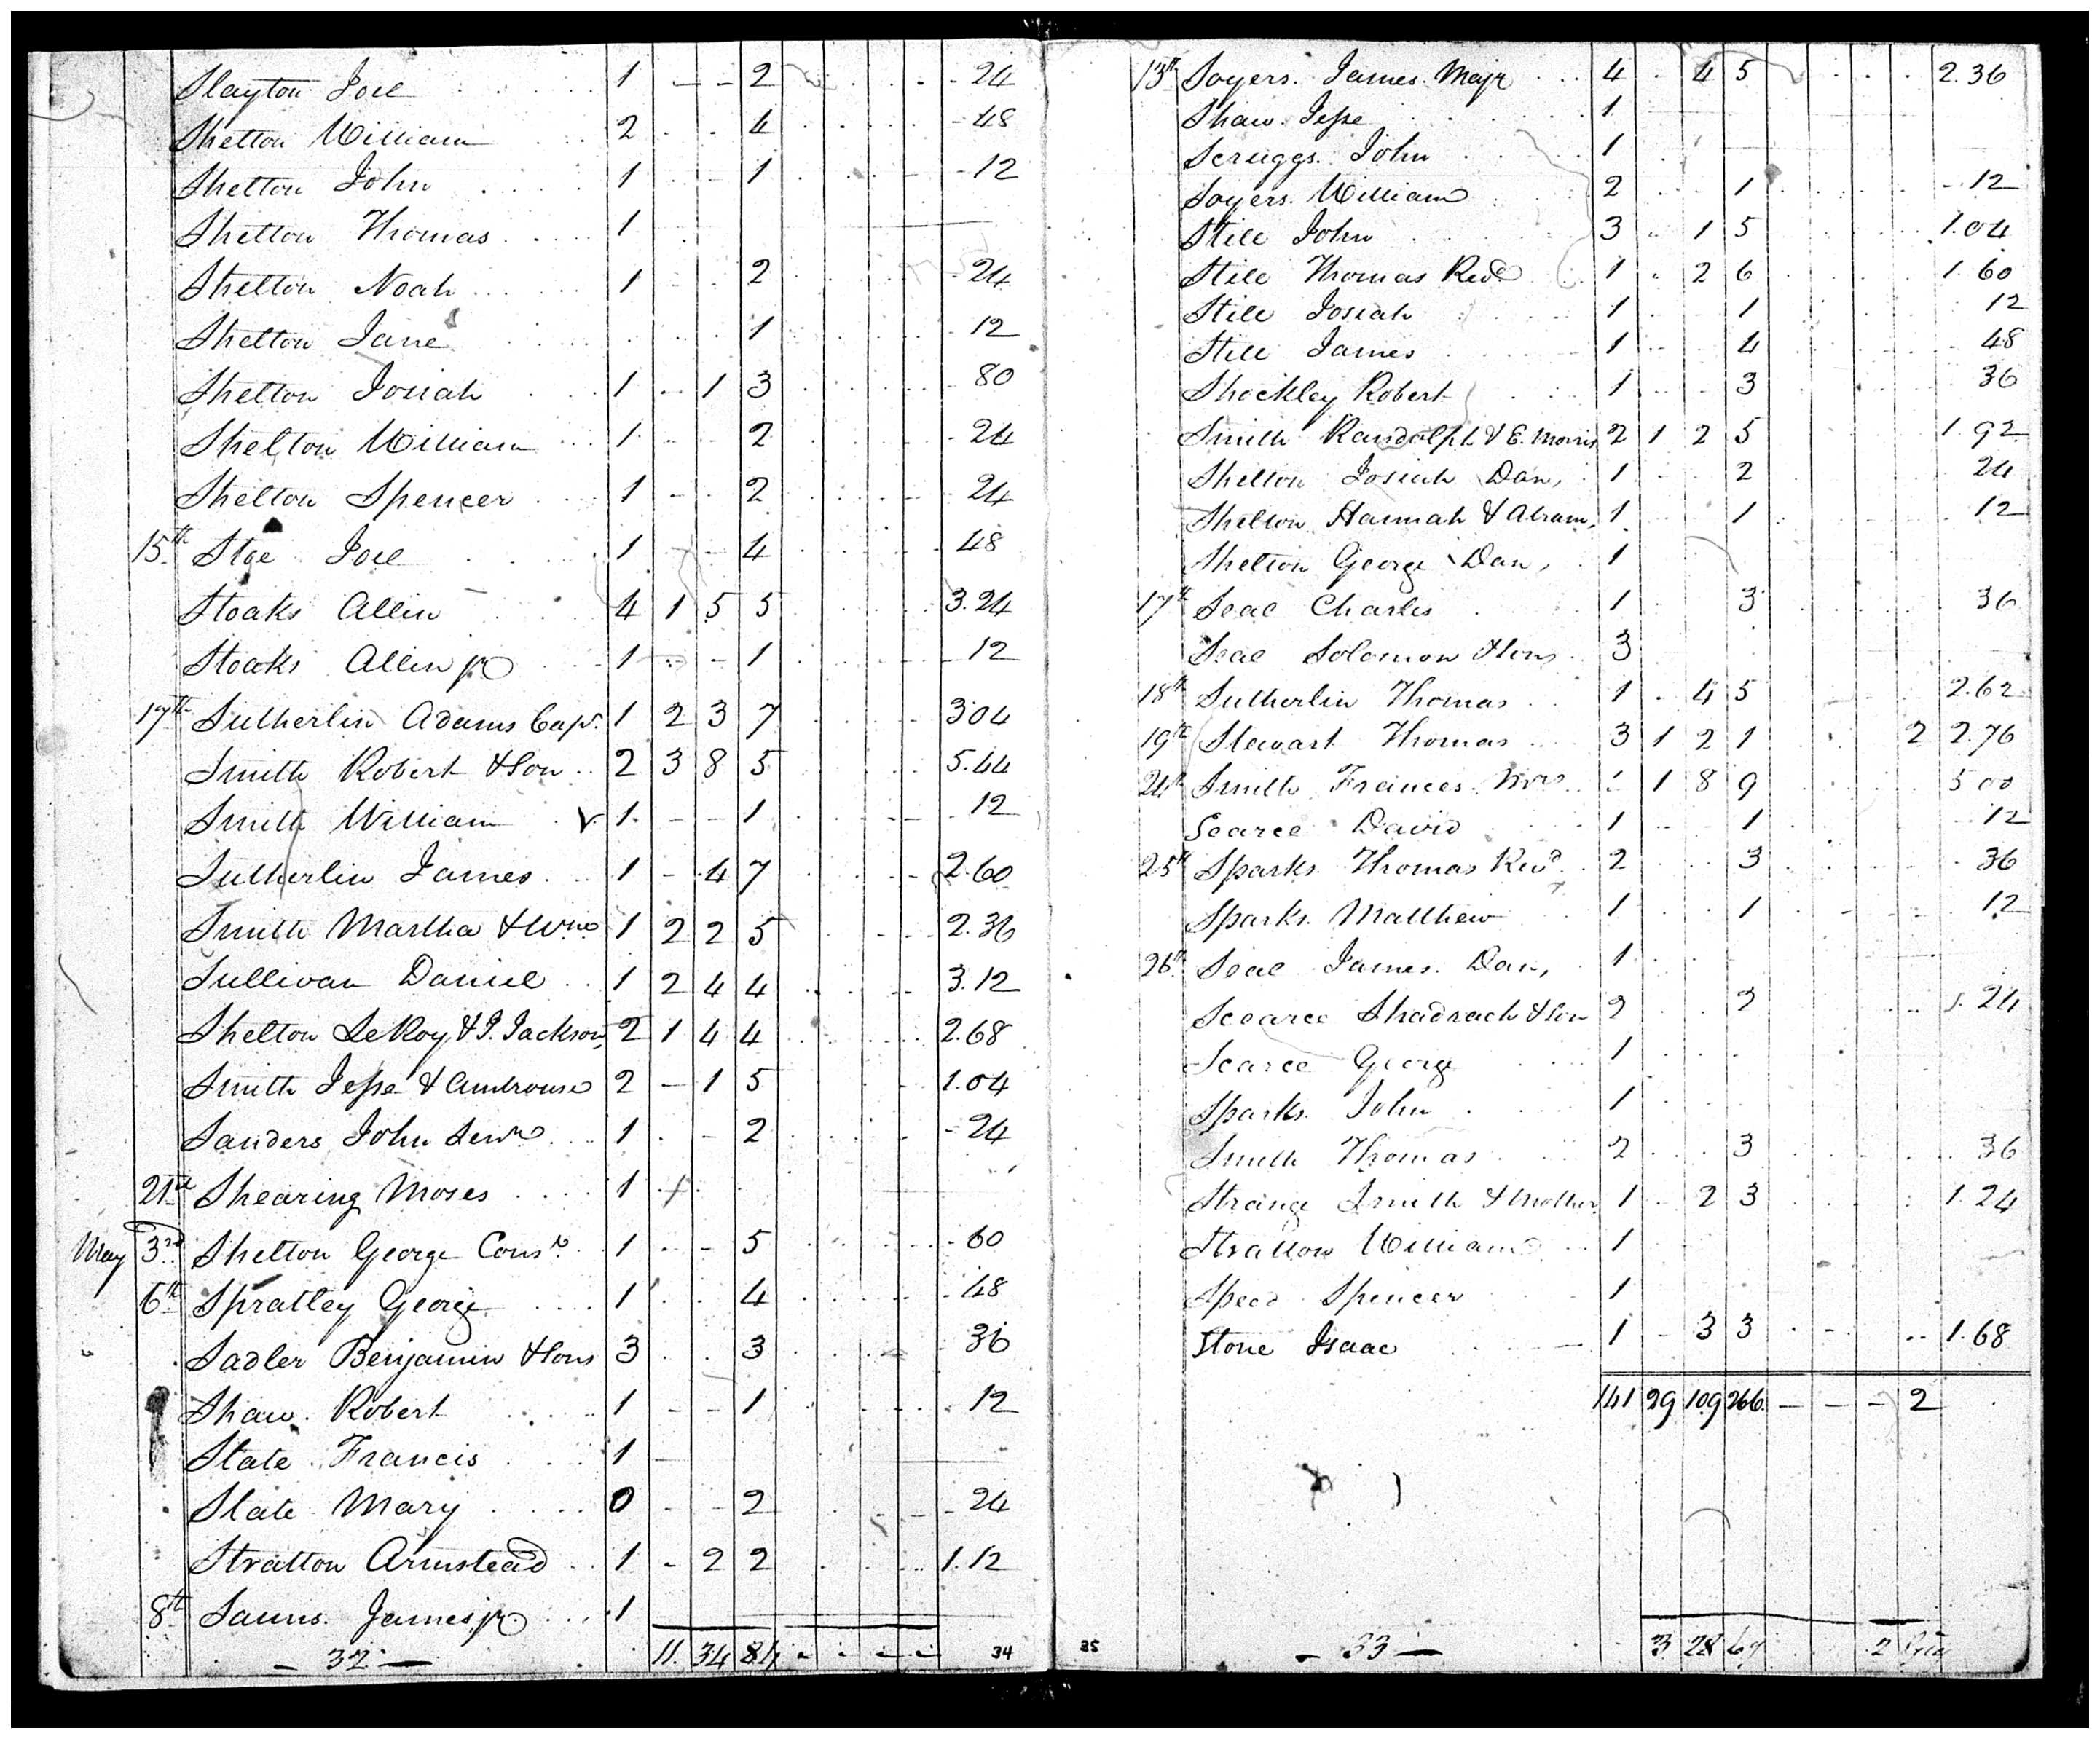 Slayton Joel 1 - - 2 - 24
Shelton William 2 4 - 48
Shelton John 1 - 1 - 12
Shelton Thomas 1
Shelton Noah 1 2 - 24
Shelton Jane 1 12
Shelton Josiah 1 1 3 80
Shelton William 1 2 - 24
Shelton Spencer 1 2 24
15th Stoe Joel 1 4 48
Stoaks Allin 4 1 5 5 3.24
Stoaks Allin jr 1 - 1 12
17th Sutherlin Adams Capt. 1 2 3 7 3 04
Smith Robert & Son 2 3 8 5 5.44
Smith William V 1 - - 1 12
Sutherlin James 1 - 4 7 2.60
Smith Martha & Wm 1 2 2 5 2.36
Sullivan Daniel 1 2 4 4 3.12
Shelton LeRoy & J. Jackson 2 1 4 4 2.68
Smith Jesse & Ambrouse 2 - 1 5 1.04
Sanders John Senr 1 - 2 - 24
21st Shearing Moses 1
May 3rd Shelton George Cons. 1 - 5 - 60
6th Spratley George 1 4 - 48
Sadler Benjamin & Sons 3 3 36
Shaw Robert 1 - - 1 12
Slate Francis 1
Slate Mary 0 - - 2 - 24
Stratton Armstead 1 - 2 2 1.12
8th James jr 1
- 32 - 11. 34 84 34
13th Soyers James Majr 4 4 5 2.36
Shaw Jesse 1
Scruggs John 1
Soyers William 2 1 - 12
Stile John 3 1 5 1.04
Stile Thomas Revd 1 2 6 1.60
Stile Josiah 1 1 12
Stile James 1 4 48
Shockley Robert 1 3 36
Smith Randolph & E. Morris 2 1 2 5 1.92
Shelton Josiah Dan, 1 2 24
Shelton Hannah & Abram, 1 1 12
Shelton George Dan, 1
17th Seal Charles 1 3 36
Seal Solomon & Sons 3
18th Sutherlin Thomas 1 4 5 2.62
19th Stewart Thomas 3 1 2 1 2 2.76
24th Smith Frances Mrs 1 8 9 5 00
Scarce David 1 1 12
25th Sparks Thomas Revd 2 3 36
Sparks Matthew 1 1 12
26th Seal James Dan, 1
Scearce Shadrach & Son 2 2 24
Scarce George 1
Sparks John 1
Smith Thomas 2 3 36
Strange Smith & Mother 1 - 2 3 1.24
Stratton William 1
Speed Spencer 1
Stone Isaac 1 - 3 3 1.68
141 29 109 266 - - - 2
35 - 33 - 3 28 67 2